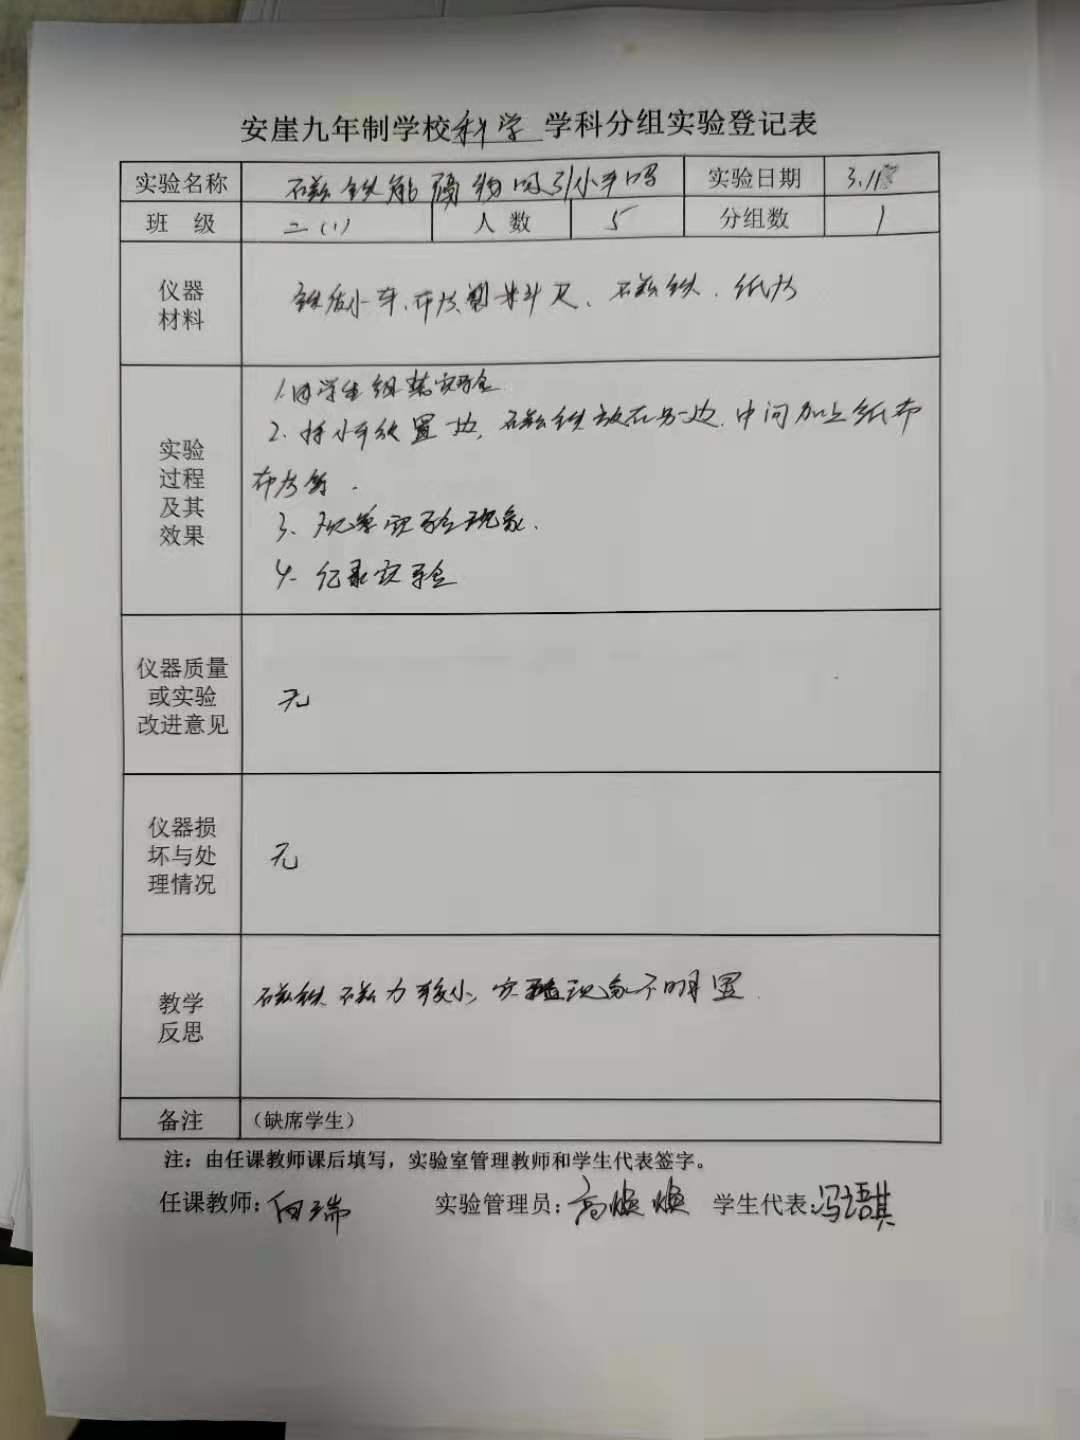 安崖九年制学校科学学科分组实验登记表
实验名称 磁铁能隔物吸引小车吗 实验日期 3.11
班 级 二(1) 人 数 5 分组数 1
仪器
材料
铁质小车、布片、塑料尺、磁铁、纸片
实验
过程
及其
效果
1.由学生组装实验
2.将小车放置一边,磁铁放在另一边.中间加上纸布
布片等.
3、观察实验现象.
4.纪录实验
仪器质量
或实验
改进意见
无
仪器损
坏与处
理情况
无
教学
反思
磁铁磁力较小,实验现象不明显.
备注 (缺席学生)
注:由任课教师课后填写,实验室管理教师和学生代表签字。
任课教师: 白瑞 实验管理员: 高焕焕 学生代表: 冯语其